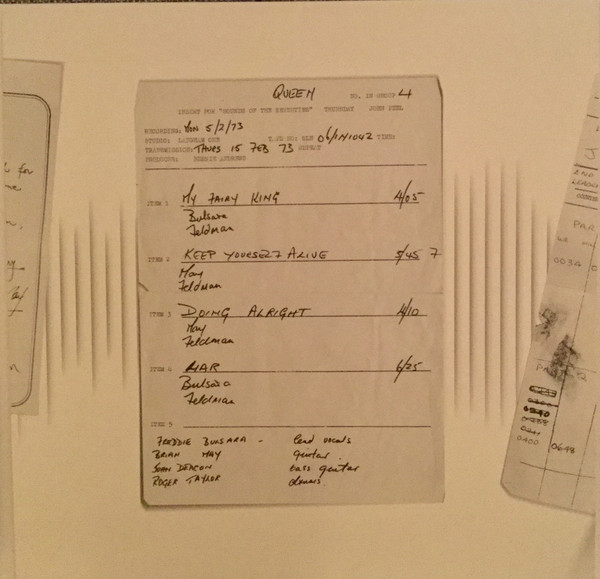 QUEEN NO. IN GROUP 4
"SOUNDS OF THE SEVENTIES" THURSDAY JOHN PEEL
RECORDING: MON 5/2/73
STUDIO: LANGHAM ONE TAPE NO: 06/1N1042 TIME:
TRANSMISSION: THURS 15 FEB 73 REPEAT
PRODUCER: BERNIE ANDREWS
ITEM 1 MY FAIRY KING 4/05
Bulsara
Feldman
ITEM 2 KEEP YOURSELF ALIVE 5/45 7
May
Feldman
ITEM 3 DOING ALRIGHT 4/10
May
Feldman
ITEM 4 LIAR 6/25
Bulsara
Feldman
ITEM 5
FREDDIE BULSARA - lead vocals
BRIAN MAY guitar.
JOHN DEACON bass guitar
ROGER TAYLOR drums.
for
J
END
PAR
0400
0648